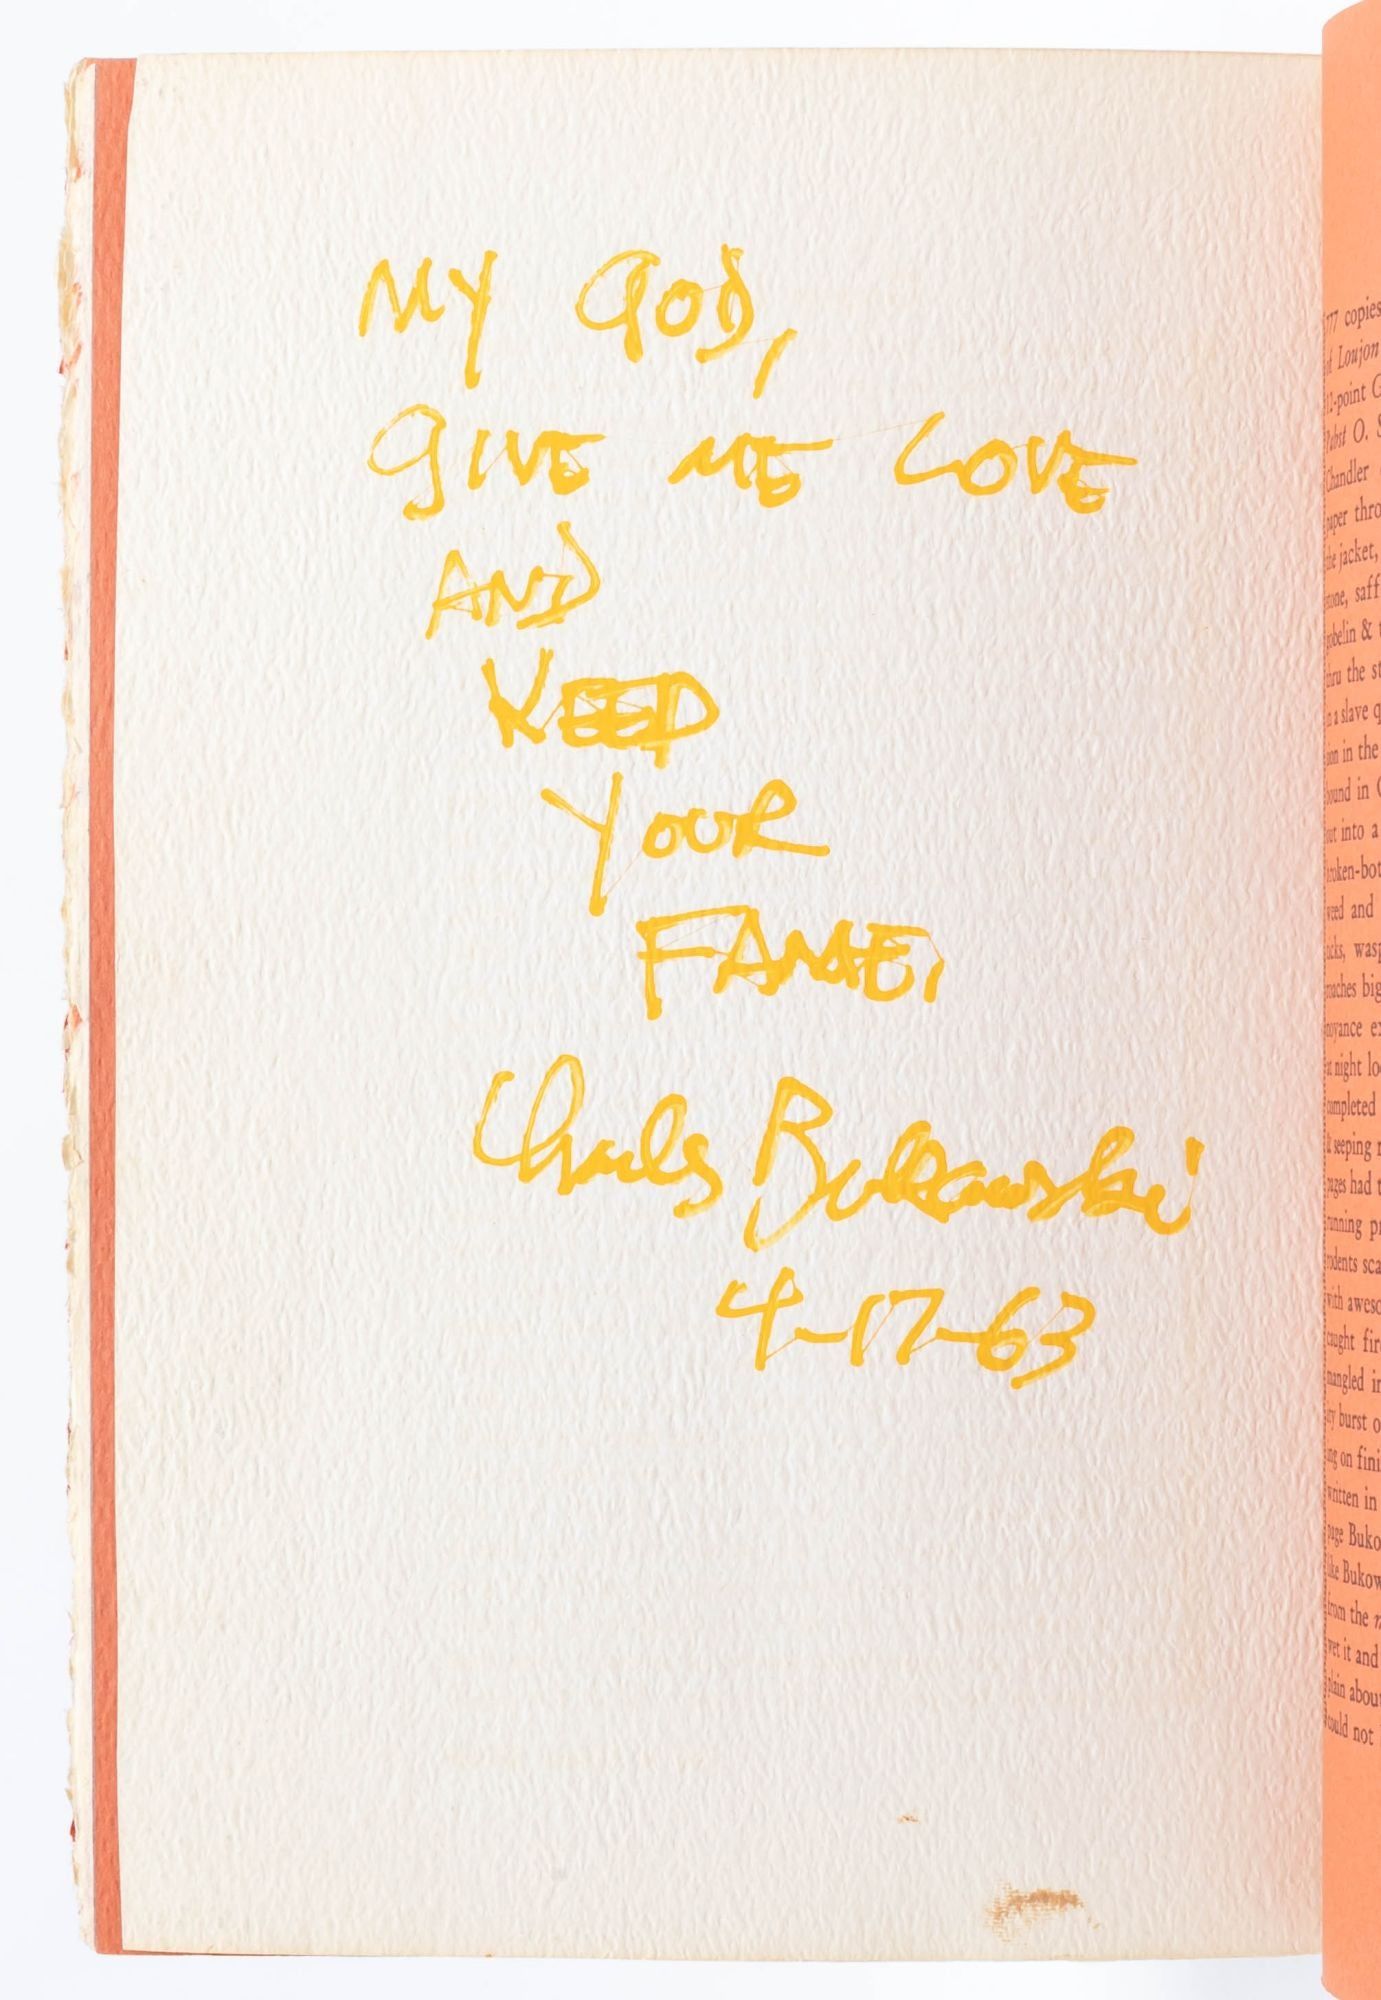 MY GOD,
GIVE ME LOVE
AND
KEEP
YOUR
FAME,
Charles Bukowski
4-17-63
777 copies
of Loujon
12-point G
Pabst O. S
Chandler
paper thro
the jacket,
stone, saff
gobelin &
thru the st
in a slave q
in the
bound in C
out into a
broken-bot
weed and
wasp
roaches big
noyance ex
at night lo
completed
seeping
pages had t
running pr
rodents sca
with aweso
caught fire
mangled in
burst o
on fini
written in
page Buko
like Bukow
from the
wet it and
plain about
could not